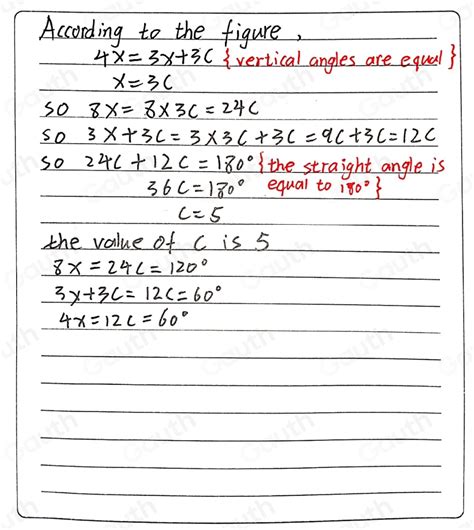 According to the figure,
4x=3x+3c {vertical angles are equal}
x=3c
so 8x=8×3c=24c
so 3x+3c=3×3c+3c=9c+3c=12c
so 24c+12c=180° {the straight angle is
36c=180° equal to 180°}
c=5
the value of c is 5
8x=24c=120°
3x+3c=12c=60°
4x=12c=60°